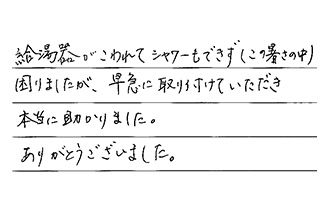 給湯器がこわれてシャワーもできず(この暑さの中)
困りましたが、早急に取り付けていただき
本当に助かりました。
ありがとうございました。